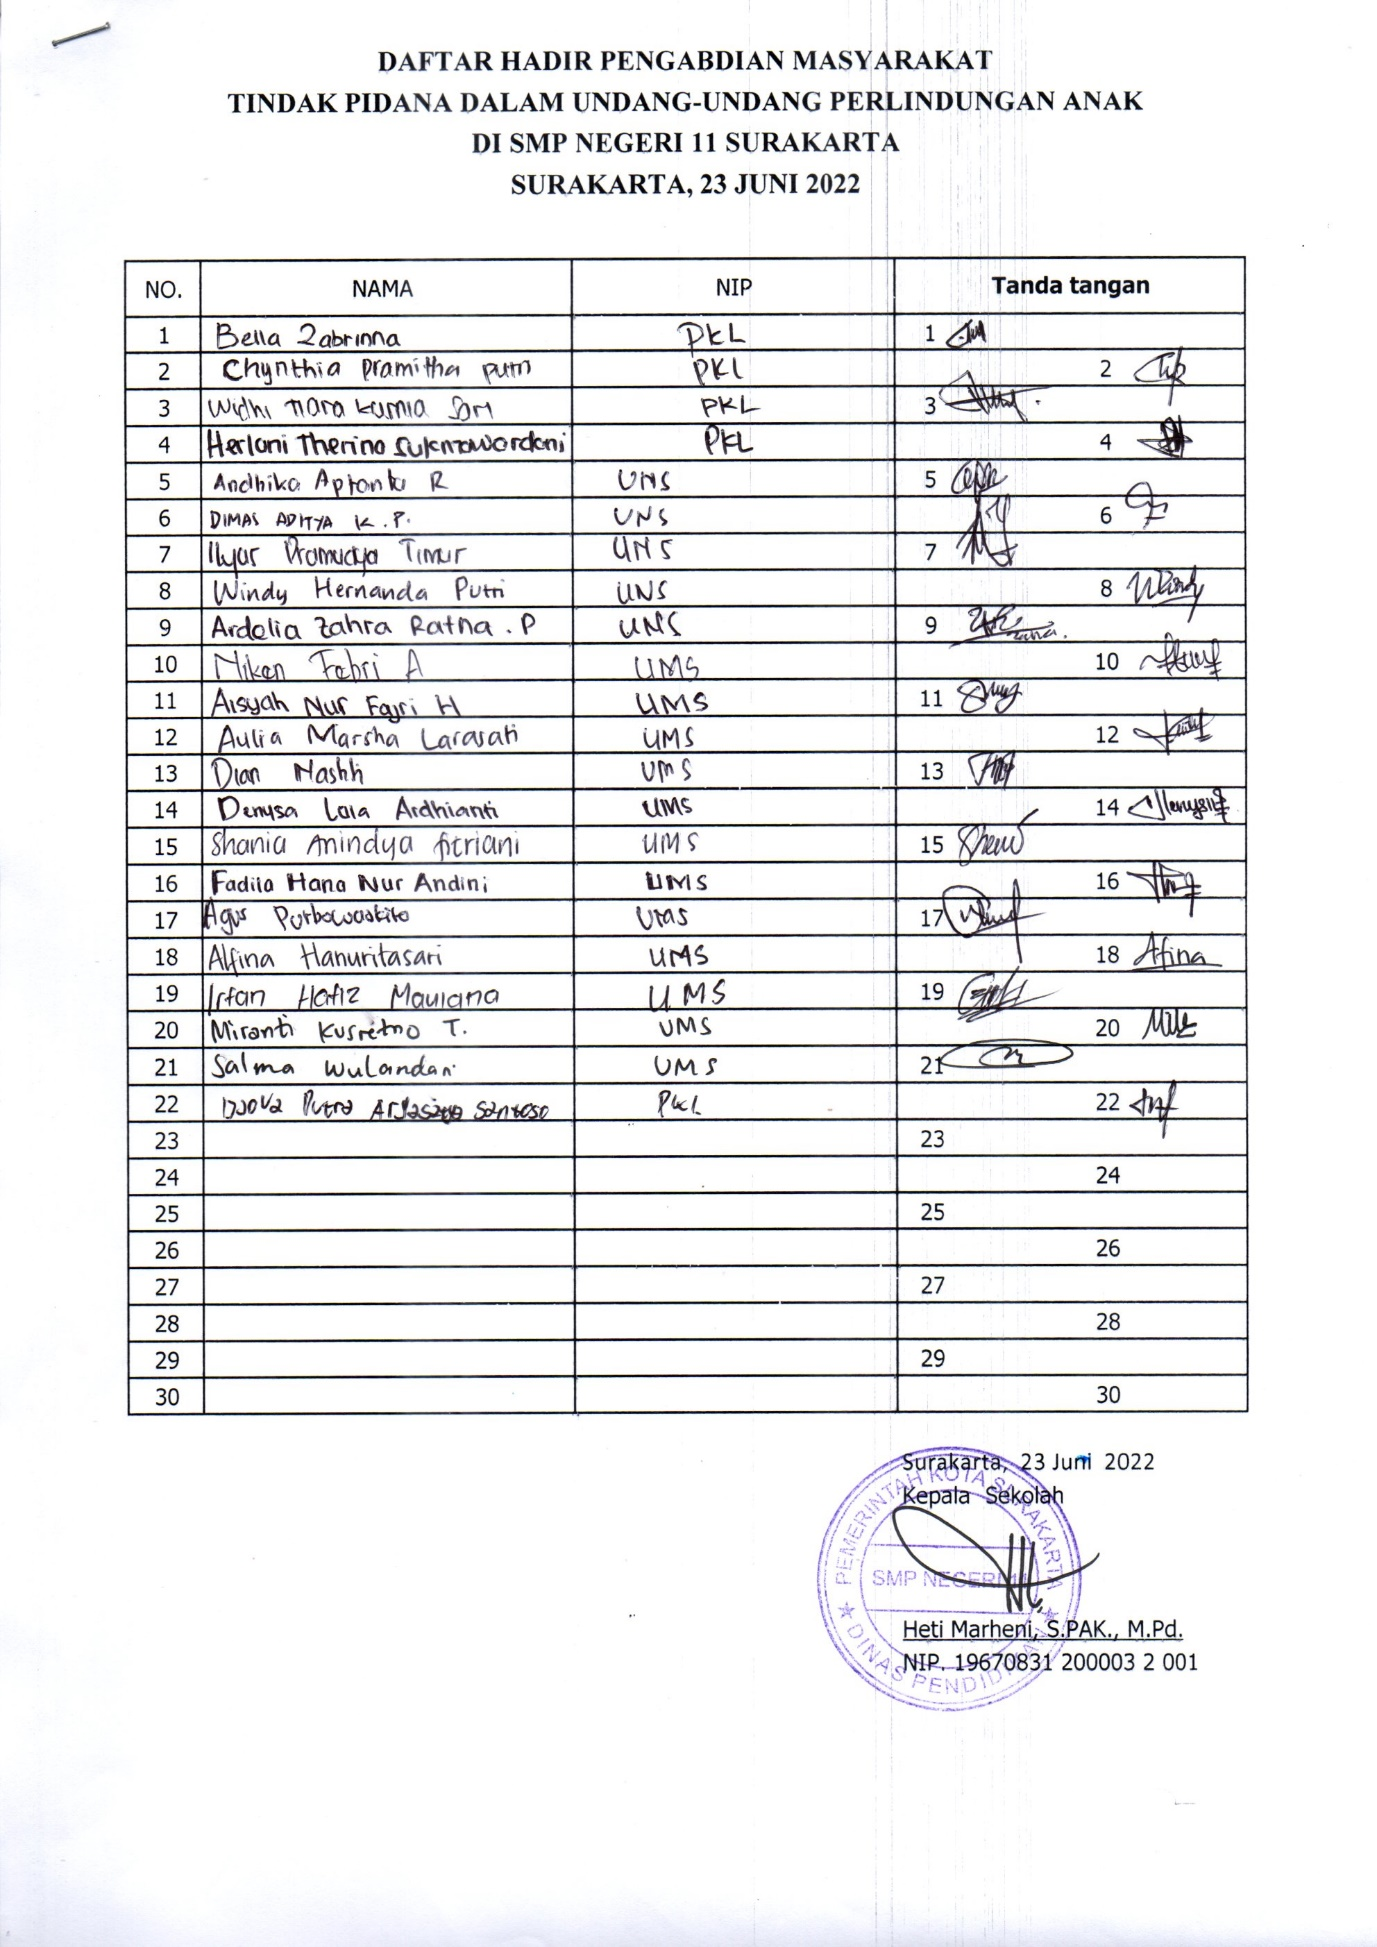 DAFTAR HADIR PENGABDIAN MASYARAKAT
TINDAK PIDANA DALAM UNDANG-UNDANG PERLINDUNGAN ANAK
DI SMP NEGERI 11 SURAKARTA
SURAKARTA, 23 JUNI 2022
NO. NAMA NIP Tanda tangan
1 Bella Zabrinna PKL 1
2 Chynthia Pramitha Putri PKL 2
3 Widhi Tiara Kurnia Sari PKL 3
4 Herlani Therina Sukmawardani PKL 4
5 Andhika Aprianta R UNS 5
6 DIMAS ADITYA K.P. UNS 6
7 Ilyas Pramudya Timur UNS 7
8 Windy Hernanda Putri UNS 8 Windy
9 Ardelia Zahra Ratna.P UNS 9
10 Niken Febri A UMS 10
11 Aisyah Nur Fajri H UMS 11
12 Aulia Marsha Larasati UMS 12
13 Dian Nashh UMS 13
14 Denysa Lola Ardhianti UMS 14
15 Shania Anindya Fitriani UMS 15
16 Fadila Hana Nur Andini UMS 16
17 Agus Purbowaskito UMS 17
18 Alfina Hanuritasari UMS 18 Afina
19 Irfan Hafiz Maulana UMS 19
20 Miranti Kusretno T. UMS 20
21 Salma Wulandari UMS 21
22 Putra Santoso PKL 22
23 23
24 24
25 25
26 26
27 27
28 28
29 29
30 30
Surakarta, 23 Juni 2022
Kepala Sekolah
PEMERINTAH KOTA SURAKARTA
SMP NEGERI 11
DINAS PENDIDIKAN
Heti Marheni, S.PAK., M.Pd.
NIP. 19670831 200003 2 001